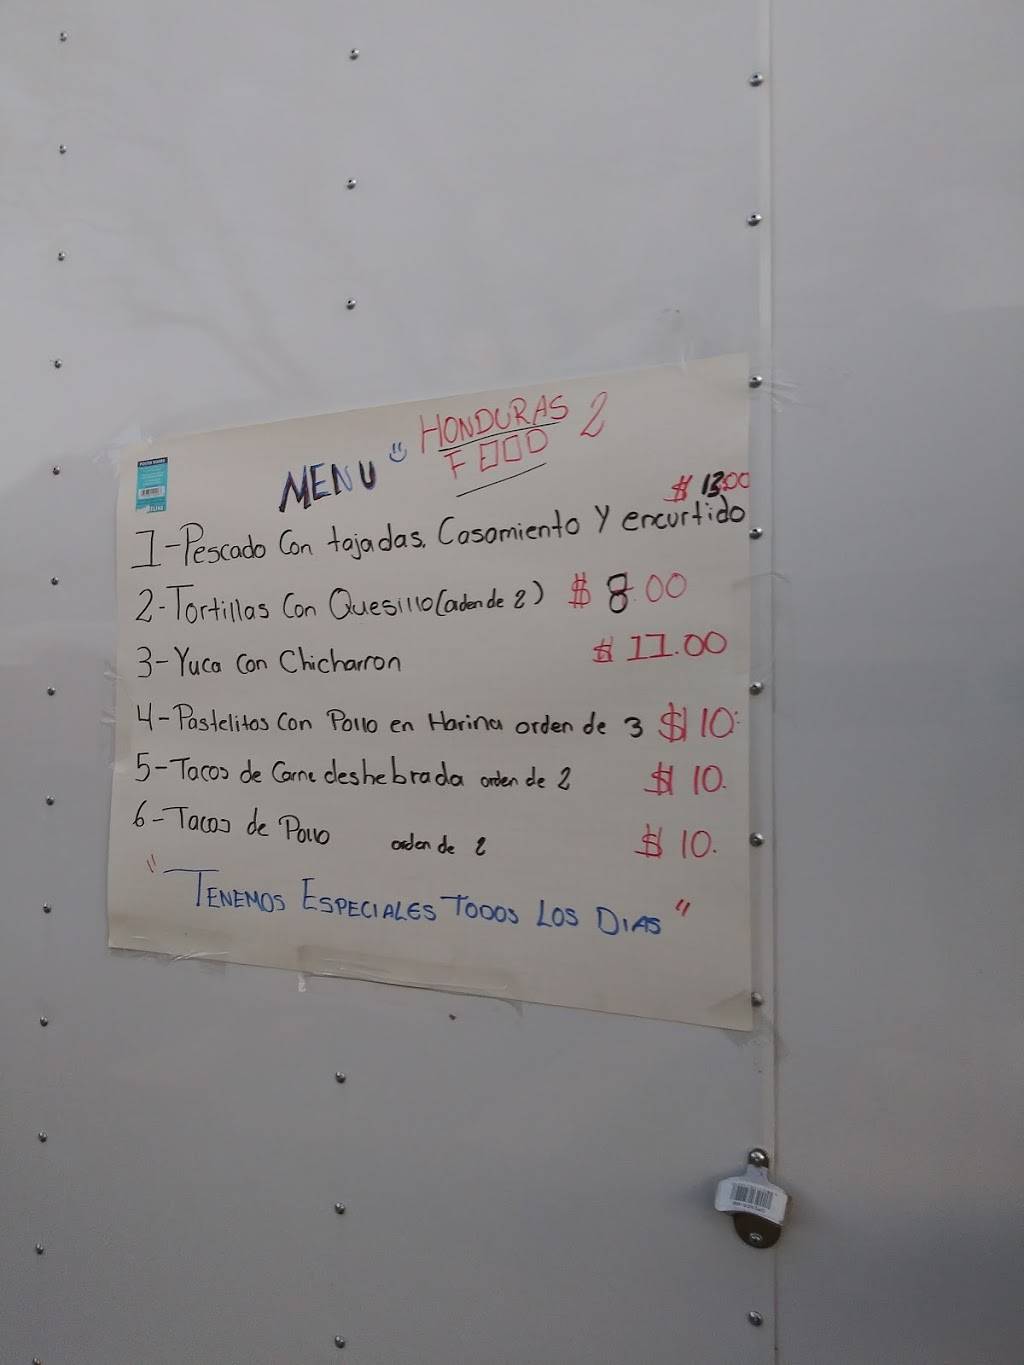 MENU HONDURAS 2
FOOD
$ 13.00
1-Pescado Con tajadas. Casamiento Y encurtido
2-Tortillas Con Quesillo (orden de 2) $ 8.00
3-Yuca Con Chicharron $ 11.00
4-Pastelitos Con Pollo en Harina orden de 3 $ 10.
5-Tacos de Carne deshebrada orden de 2 $ 10.
6-Tacos de Pollo orden de 2 $ 10.
"TENEMOS ESPECIALES TODOS LOS DIAS"